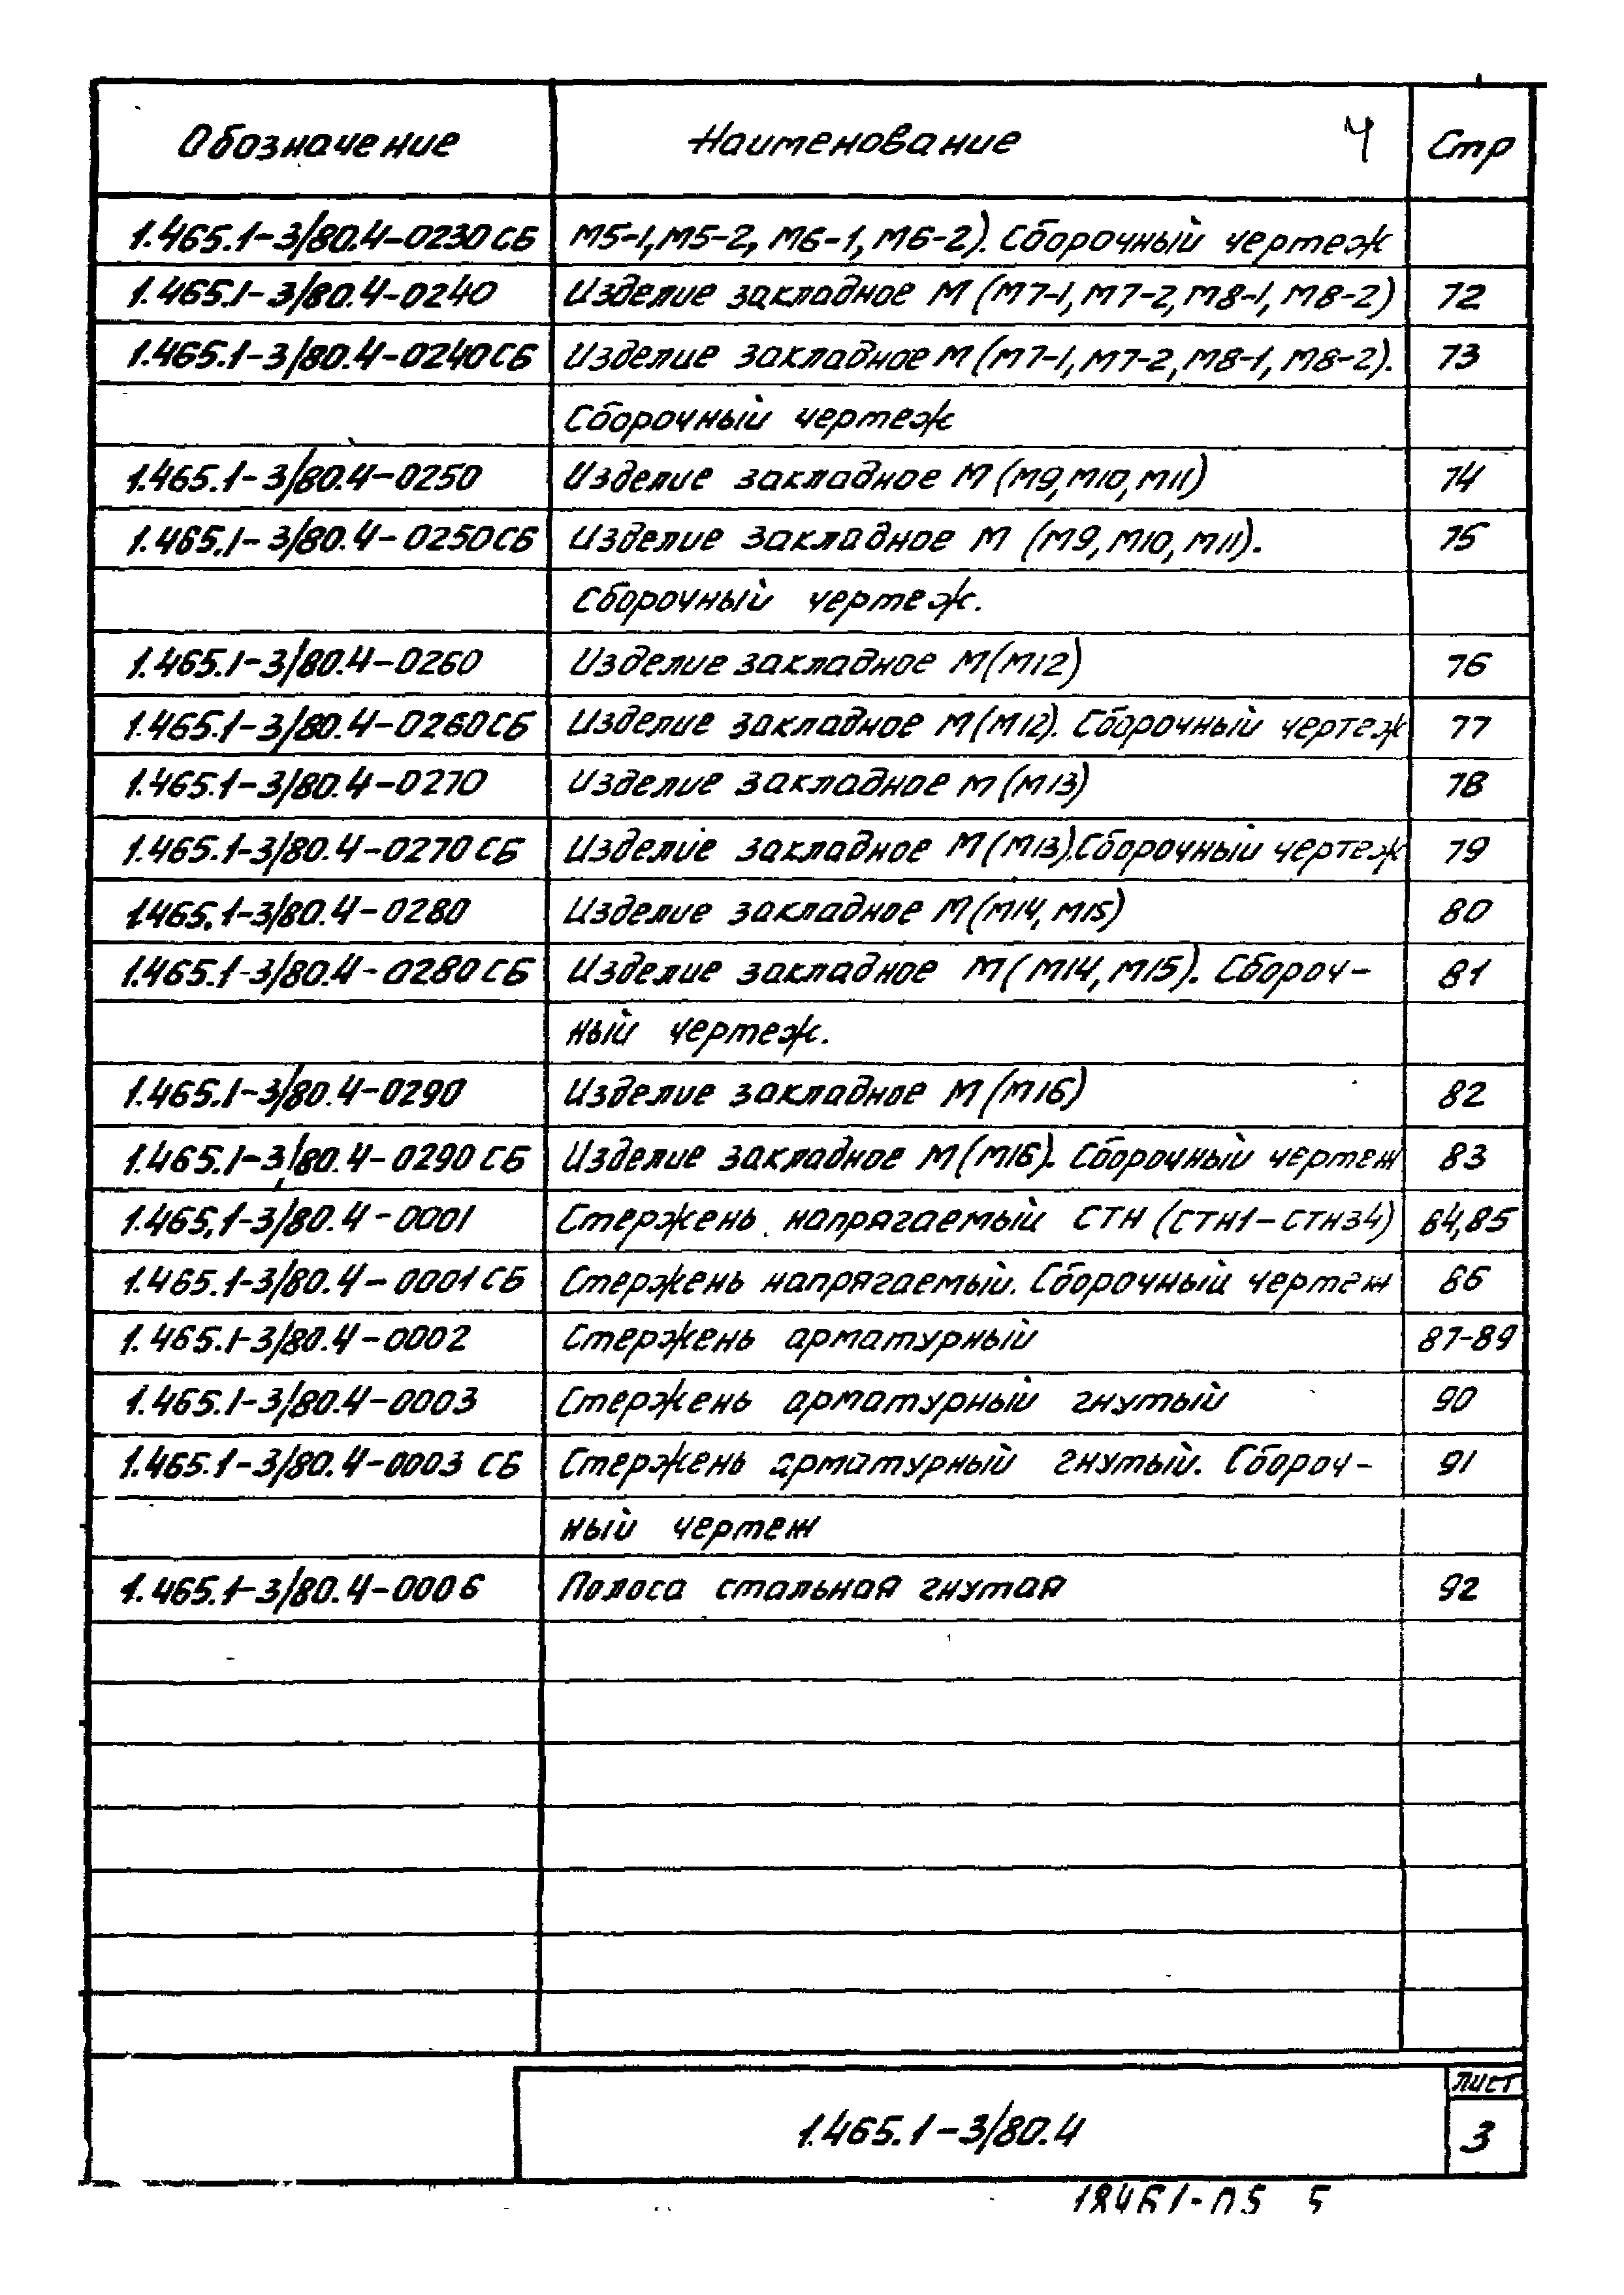 Обозначение Наименование 4 Стр
1.465.1-3/80.4-0230СБ М5-1, М5-2, М6-1, М6-2). Сборочный чертеж
1.465.1-3/80.4-0240 Изделие закладное М (М7-1, М7-2, М8-1, М8-2) 72
1.465.1-3/80.4-0240СБ Изделие закладное М (М7-1, М7-2, М8-1, М8-2). 73
Сборочный чертеж
1.465.1-3/80.4-0250 Изделие закладное М (М9, М10, М11) 74
1.465.1-3/80.4-0250СБ Изделие закладное М (М9, М10, М11). 75
Сборочный чертеж.
1.465.1-3/80.4-0260 Изделие закладное М(М12) 76
1.465.1-3/80.4-0260СБ Изделие закладное М(М12). Сборочный чертеж 77
1.465.1-3/80.4-0270 Изделие закладное М (М13) 78
1.465.1-3/80.4-0270 СБ Изделие закладное М (М13).Сборочный чертеж 79
1.465.1-3/80.4-0280 Изделие закладное М(М14, М15) 80
1.465.1-3/80.4-0280 СБ Изделие закладное М(М14, М15). Сбороч-81
ный чертеж.
1.465.1-3/80.4-0290 Изделие закладное М (М16) 82
1.465.1-3/80.4-0290 СБ Изделие закладное М (М16). Сборочный чертеж 83
1.465.1-3/80.4-0001 Стержень напрягаемый СТН (СТН1-СТН34) 84,85
1.465.1-3/80.4-0001 СБ Стержень напрягаемый. Сборочный чертеж 86
1.465.1-3/80.4-0002 Стержень арматурный 87-89
1.465.1-3/80.4-0003 Стержень арматурный гнутый 90
1.465.1-3/80.4-0003 СБ Стержень арматурный гнутый. Сбороч- 91
ный чертеж
1.465.1-3/80.4-0006 Полоса стальная гнутая 92
лист
1.465.1-3/80.4 3
18461-05 5